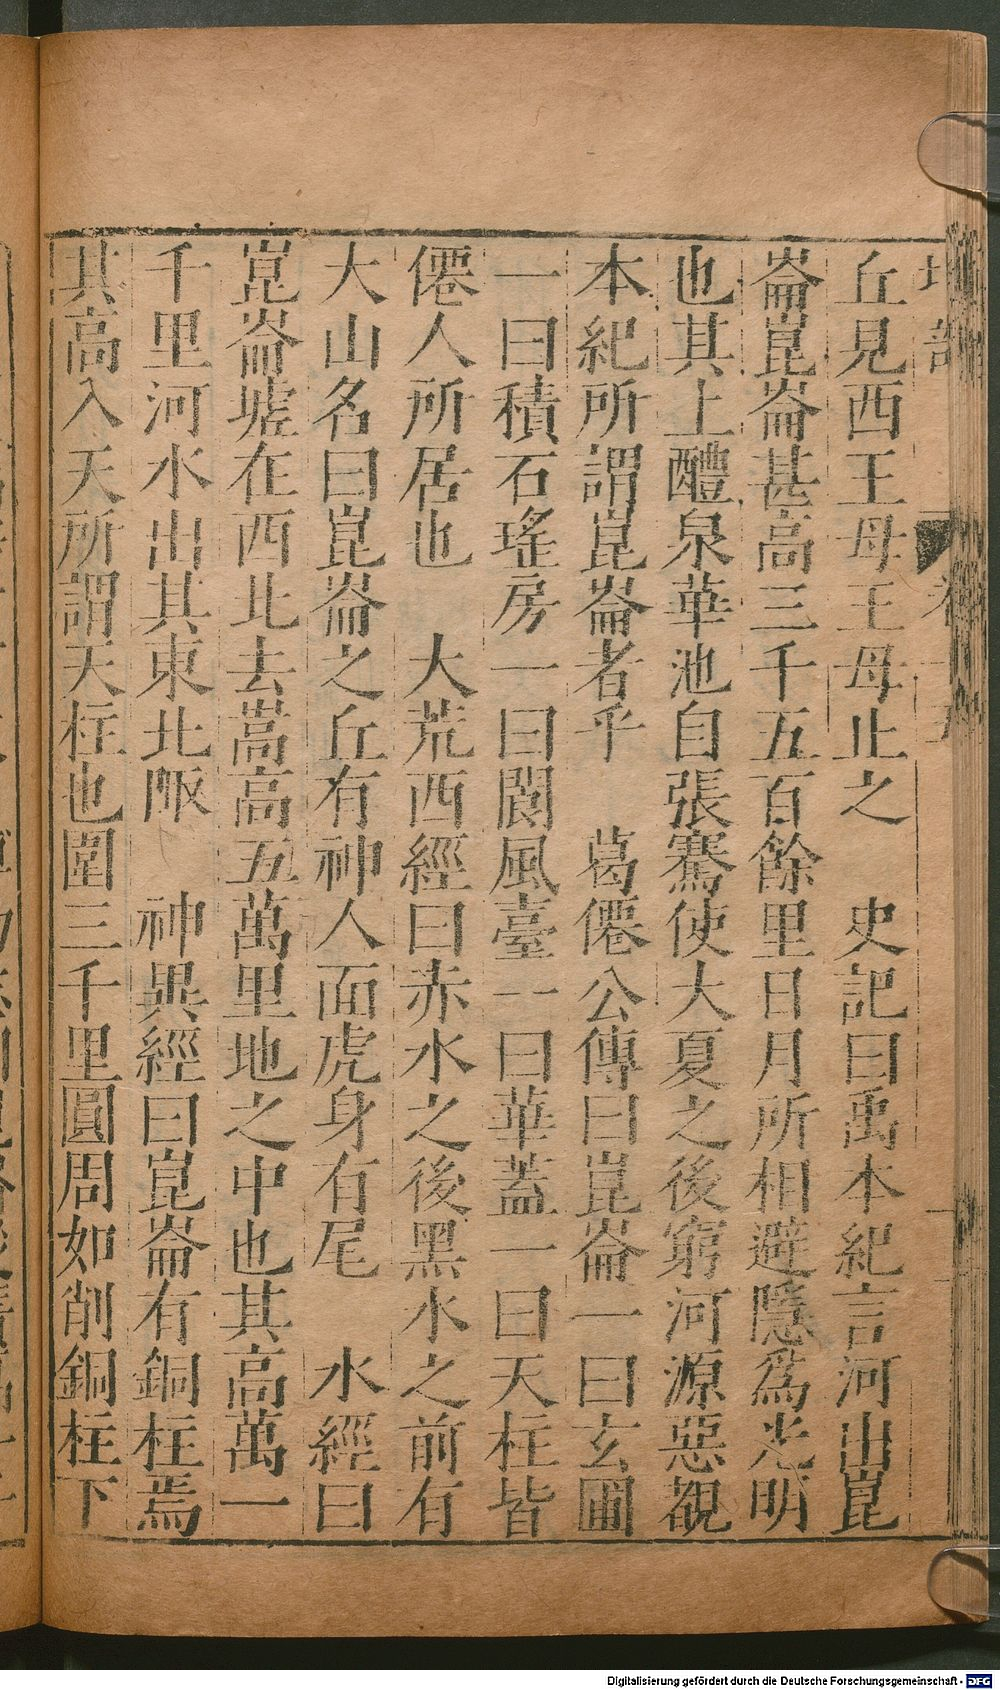 丘見西王母王母止之　史記曰禹本紀言河出崑
崙崑崙甚高三千五百餘里日月所相避隱爲光明
也其上醴泉華池自張騫使大夏之後窮河源惡覩
本紀所謂崑崙者乎　葛僊公傳曰崑崙一曰玄圃
一曰積石瑤房一曰閬風臺一曰華蓋一曰天柱皆
僊人所居也　大荒西經曰赤水之後黑水之前有
大山名曰崑崙之丘有神人面虎身有尾　水經曰
崑崙墟在西北去嵩高五萬里地之中也其高萬一
千里河水出其東北陬　神異經曰崑崙有銅柱焉
其高入天所謂天柱也圍三千里圓周如削銅柱下
Digitalisierung gefördert durch die Deutsche Forschungsgemeinschaft - DFG